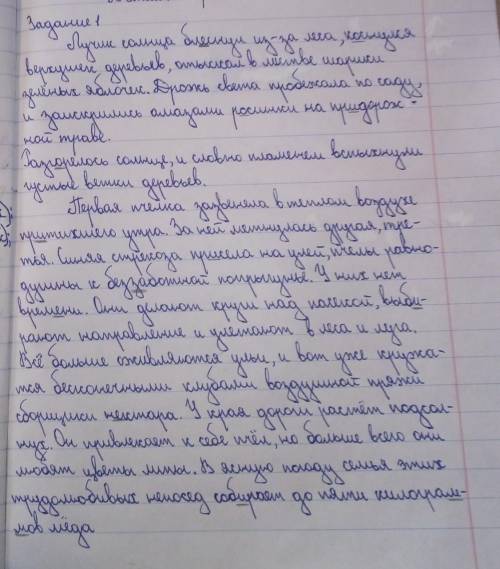 Задание 1
Лучик солнца блеснул из-за леса, коснулся
верхушек деревьев, отыскал в листве шарики
зелёных яблочек. Дрожь света пробежала по саду,
и заискрились алмазами росинки на придорож-
ной траве.
Разгорелось солнце, и словно пламенем вспыхнули
густые ветки деревьев.
Первая пчёлка зазвенела в теплом воздухе
притихшего утра. За ней метнулась другая, тре-
тья. Синяя стрекоза присела на улей, пчёлы равно-
душны к беззаботной попрыгунье. У них нет
времени. Они делают круги над пасекой, выби-
рают направление и улетают в леса и луга.
Всё больше оживляются ульи, и вот уже кружа-
тся бесконечными клубами воздушной пряжи
сборщики нектара. У края дороги растёт подсол-
нух. Он привлекает к себе пчёл, но больше всего они
любят цветы липы. В ясную погоду семья этих
трудолюбивых непосед собирает до пяти килограм-
мов мёда